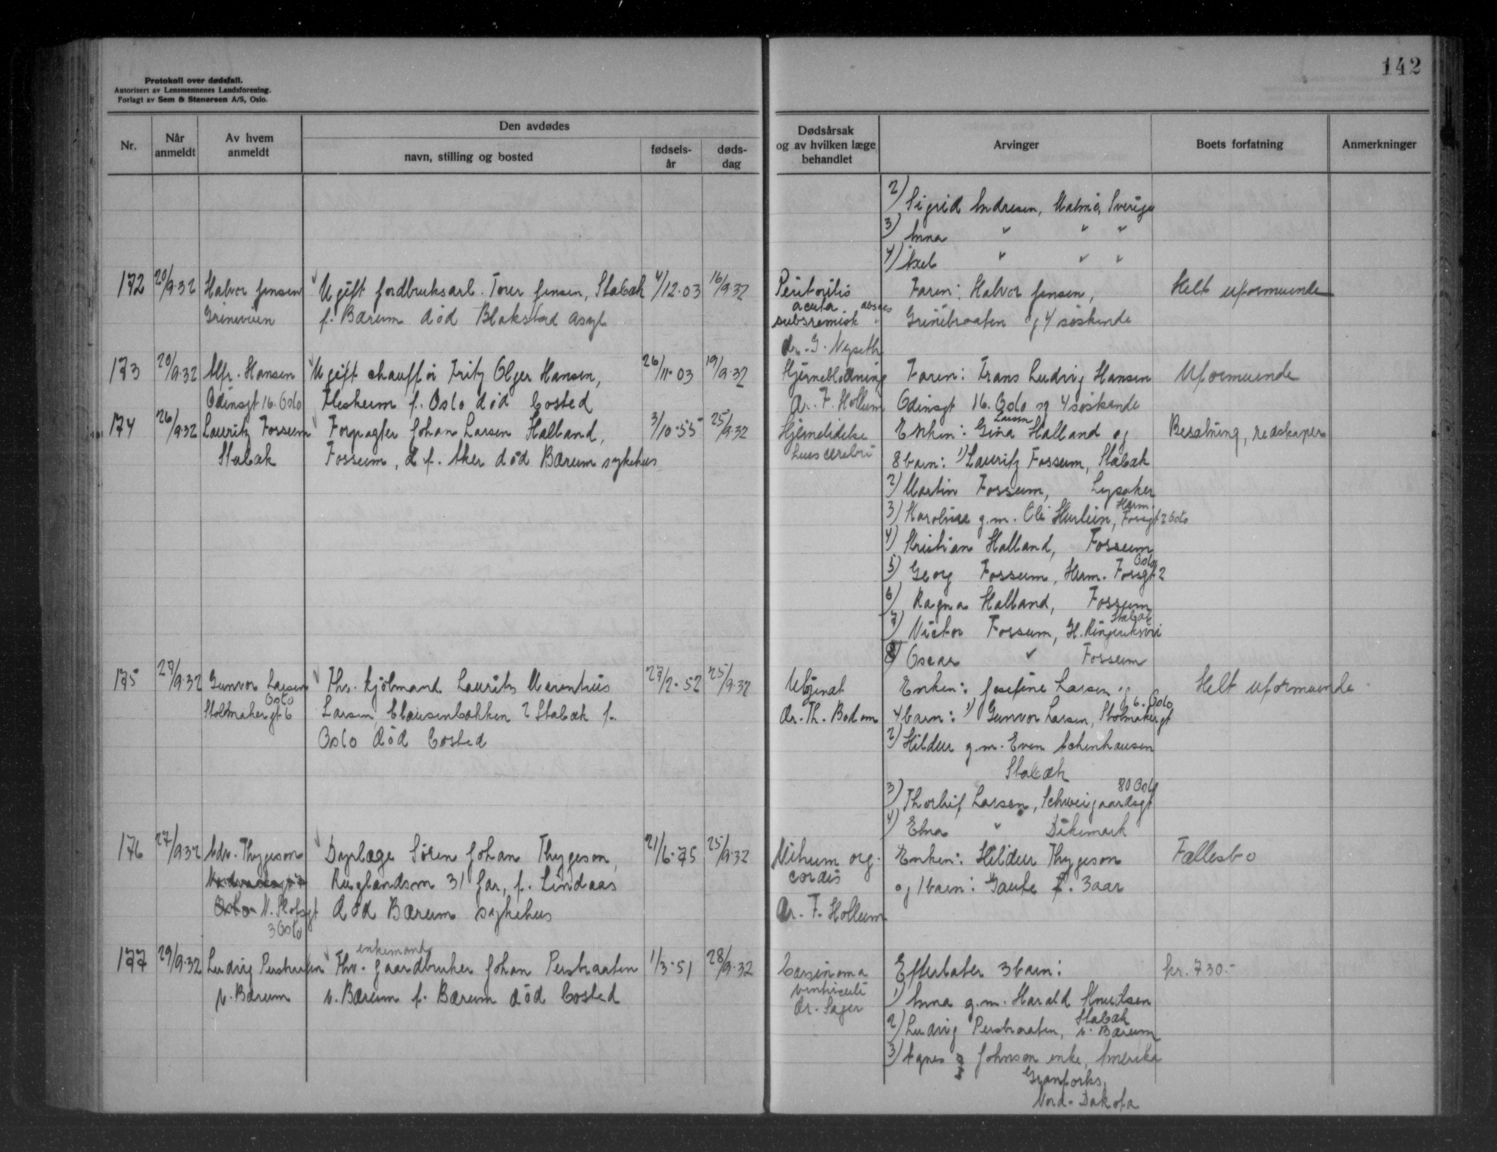 Protokoll over dødsfall.
Autorisert av Lensmennenes Landsforening.
Forlagt av Sem & Stenersen A/S, Oslo.
142
Nr.
Når anmeldt
Av hvem anmeldt
Den avdødes
navn, stilling og bosted
fødsels-år
døds-dag
Dødsårsak og av hvilken læge behandlet
Arvinger
Boets forfatning
Anmerkninger
2) Sigrid Andresen, Malmö, Sverige
3) Anna " " "
4) Axel " " "
172 20/9.32 Halvor Jensen Ugift jordbruksarb. Torer Jensen, Stabæk 4/12.03 16/9.32 Peritonitis Faren: Halvor Jensen, Helt uformuende
Greneveien f. Bærum død Blakstad asyl acuta absces Grinibraaten og 4 søskende
dr. G. Nyseth
173 20/9.32 Alfr. Hansen Ugift chauffør Fritz Olger Hansen, 26/11.03 19/9.32 Hjerneblødning Faren: Frans Ludvig Hansen Uformuende
Odinsgt 16. Oslo Flesheim f. Oslo død bosted dr. F. Hollum Odinsgt 16. Oslo og 4 søskende
174 26/9.32 Lauritz Fossum Forpagter Johan Larsen Halland, 3/10.55 25/9.32 Hjernelidelse Enken: Gina Larsen Halland og Besætning, redskaper
Stabæk Fossum, f. Aker død Bærum sykehus Lues cerebri 8 barn: 1) Lauritz Fossum, Stabæk
2) Martin Fossum, Lysaker
3) Karoline g.m. Ole Hurlein, Herm. Fossgt 2 Oslo
4) Kristian Halland, Fossum
5) Georg Fossum, Herm. Fossgt 2 Oslo
6) Ragna Halland, Fossum
7) Victor Fossum, H. Ringeriksvei Stabæk
8) Oscar " Fossum
175 27/9.32 Gunvor Larsen Fhv. Kjøbmand Laurits Marentius 27/2.52 25/9.32 Ubejent Enken: Josefine Larsen og Helt uformuende
Stolmakergt 6 Oslo Larsen Clausenbakken 2 Stabæk f. dr. Th. Bodom 4 barn: 1) Gunvor Larsen, Stolmakergt 6. Oslo
Oslo død bosted 2) Hildur g.m. Even Achenhausen
Stabæk
3) Thorleif Larsen, Schweigaardsgt 80 Oslo
4) Edna " Dikemark
176 27/9.32 Adv. Thygeson Dyrlæge Sören Johan Thygeson, 21/6.75 25/9.32 Vitium org. Enken: Hildur Thygeson Fællesbo
Ruglandsvn 31 Jar, f. Lindaas cordis og 1 barn: Gaute f. 3 aar
N. Slotsgt død Bærum sykehus dr. F. Hollum
3 Oslo
177 29/9.32 Ludvig Persbraaten Fhv. enkemand gaardbruker Johan Persbraaten 1/3.51 28/9.32 Carsinoma Efterlater 3 barn: kr. 730.-
v. Bærum v. Bærum f. Bærum død bosted ventriculi 1) Anna g.m. Harald Knutsen
dr. Sager Stabæk
2) Ludvig Persbraaten, v. Bærum
3) Agnes Johnson enke, Amerika
Granforks,
Nord-Dakota